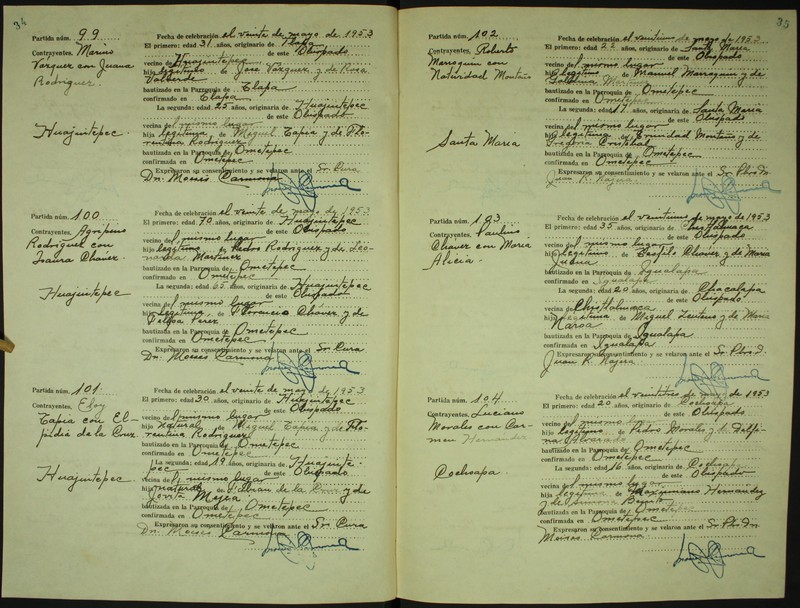 34
Partida núm. 99
Contrayentes, Marino
Vazquez con Juana
Rodriguez.
Huajintepec.
Fecha de celebración el veinte de mayo de 1953
El primero: edad 31 años, originario de Tlapa
de este Obispado
vecino de Huajintepec
hijo legitimo de Jose Vazquez y de Rosa
Valverde
bautizado en la Parroquia de Tlapa
confirmado en Tlapa
La segunda: edad 25 años, originaria de Huajintepec
de este Obispado
vecina del mismo lugar
hija legitima de Miguel Tapia y de Flo-
rentina Rodriguez
bautizada en la Parroquia de Ometepec
confirmada en Ometepec
Expresaron su consentimiento y se velaron ante el Sr. Cura
Dn. Moises Carmona
Partida núm. 100
Contrayentes, Agripino
Rodriguez con
Isaura Chavez.
Huajintepec
Fecha de celebración el veinte de mayo de 1953
El primero: edad 70 años, originario de Huajintepec
de este Obispado
vecino del mismo lugar
hijo legitimo de Pedro Rodriguez y de Leo-
narda Martinez
bautizado en la Parroquia de Ometepec
confirmado en Ometepec
La segunda: edad 65 años, originaria de Huajintepec
de este Obispado
vecina del mismo lugar
hija legitima de Florencio Chávez y de
Perez
bautizada en la Parroquia de Ometepec
confirmada en Ometepec
Expresaron su consentimiento y se velaron ante el Sr. Cura
Dn. Moises Carmona
Partida núm. 101
Contrayentes, Eloy
Tapia con El-
pidia de la Cruz
Huajintepec
Fecha de celebración el veinte de mayo de 1953
El primero: edad 30 años, originario de Huajintepec
de este Obispado
vecino del mismo lugar
hijo natural de Miguel Tapia y de Flo-
rentina Rodriguez
bautizado en la Parroquia de Ometepec
confirmado en Ometepec
La segunda: edad 19 años, originaria de Huajinte-
pec de este Obispado
vecina del mismo lugar
hija natural de Fabian de la Cruz y de
Jovita Mejia
bautizada en la Parroquia de Ometepec
confirmada en Ometepec
Expresaron su consentimiento y se velaron ante el Sr. Cura
Dn. Moises Carmona
35
Partida núm. 102
Contrayentes, Roberto
Marroquin con
Natividad Montaño
Santa Maria
Fecha de celebración el veintiuno de mayo de 1953
El primero: edad 22 años, originario de Santa Maria
de este Obispado
vecino del mismo lugar
hijo legitimo de Manuel Marroquin y de
Martinez
bautizado en la Parroquia de Ometepec
confirmado en Ometepec
La segunda: edad 17 años, originaria de Santa Maria
de este Obispado
vecina del mismo lugar
hija legitima de Trinidad Montaño y de
Gregoria Cristobal
bautizada en la Parroquia de Ometepec
confirmada en Ometepec
Expresaron su consentimiento y se velaron ante el Sr. Pbro. Dn.
Juan R. Najera
Partida núm. 103
Contrayentes, Paulino
Chavez con Maria
Alicia.
Fecha de celebración el veintiuno de mayo de 1953
El primero: edad 35 años, originario de
de este Obispado
vecino del mismo lugar
hijo legitimo de Chávez y de Maria
Juana
bautizado en la Parroquia de Igualapa
confirmado en Igualapa
La segunda: edad 20 años, originaria de Chacalapa
de este Obispado
vecina de
hija legitima de Miguel Zenteno y de Maria
bautizada en la Parroquia de Igualapa
confirmada en Igualapa
Expresaron su consentimiento y se velaron ante el Sr. Pbro. D.
Juan R. Najera
Partida núm. 104
Contrayentes, Luciano
Morales con Car-
men Hernandez
Cochoapa
Fecha de celebración el de mayo de 1953
El primero: edad 20 años, originario de Cochoapa
de este Obispado
vecino del mismo
hijo legitimo de Pedro Morales y de Delfi-
na Alvarado
bautizado en la Parroquia de Ometepec
confirmado en Ometepec
La segunda: edad 16 años, originaria de Cochoapa
de este Obispado
vecina del mismo lugar
hija legitima de Maximiano Hernandez
y de Simona Benito
bautizada en la Parroquia de Ometepec
confirmada en Ometepec
Expresaron su consentimiento y se velaron ante el Sr. Pbro. Dn
Moises Carmona